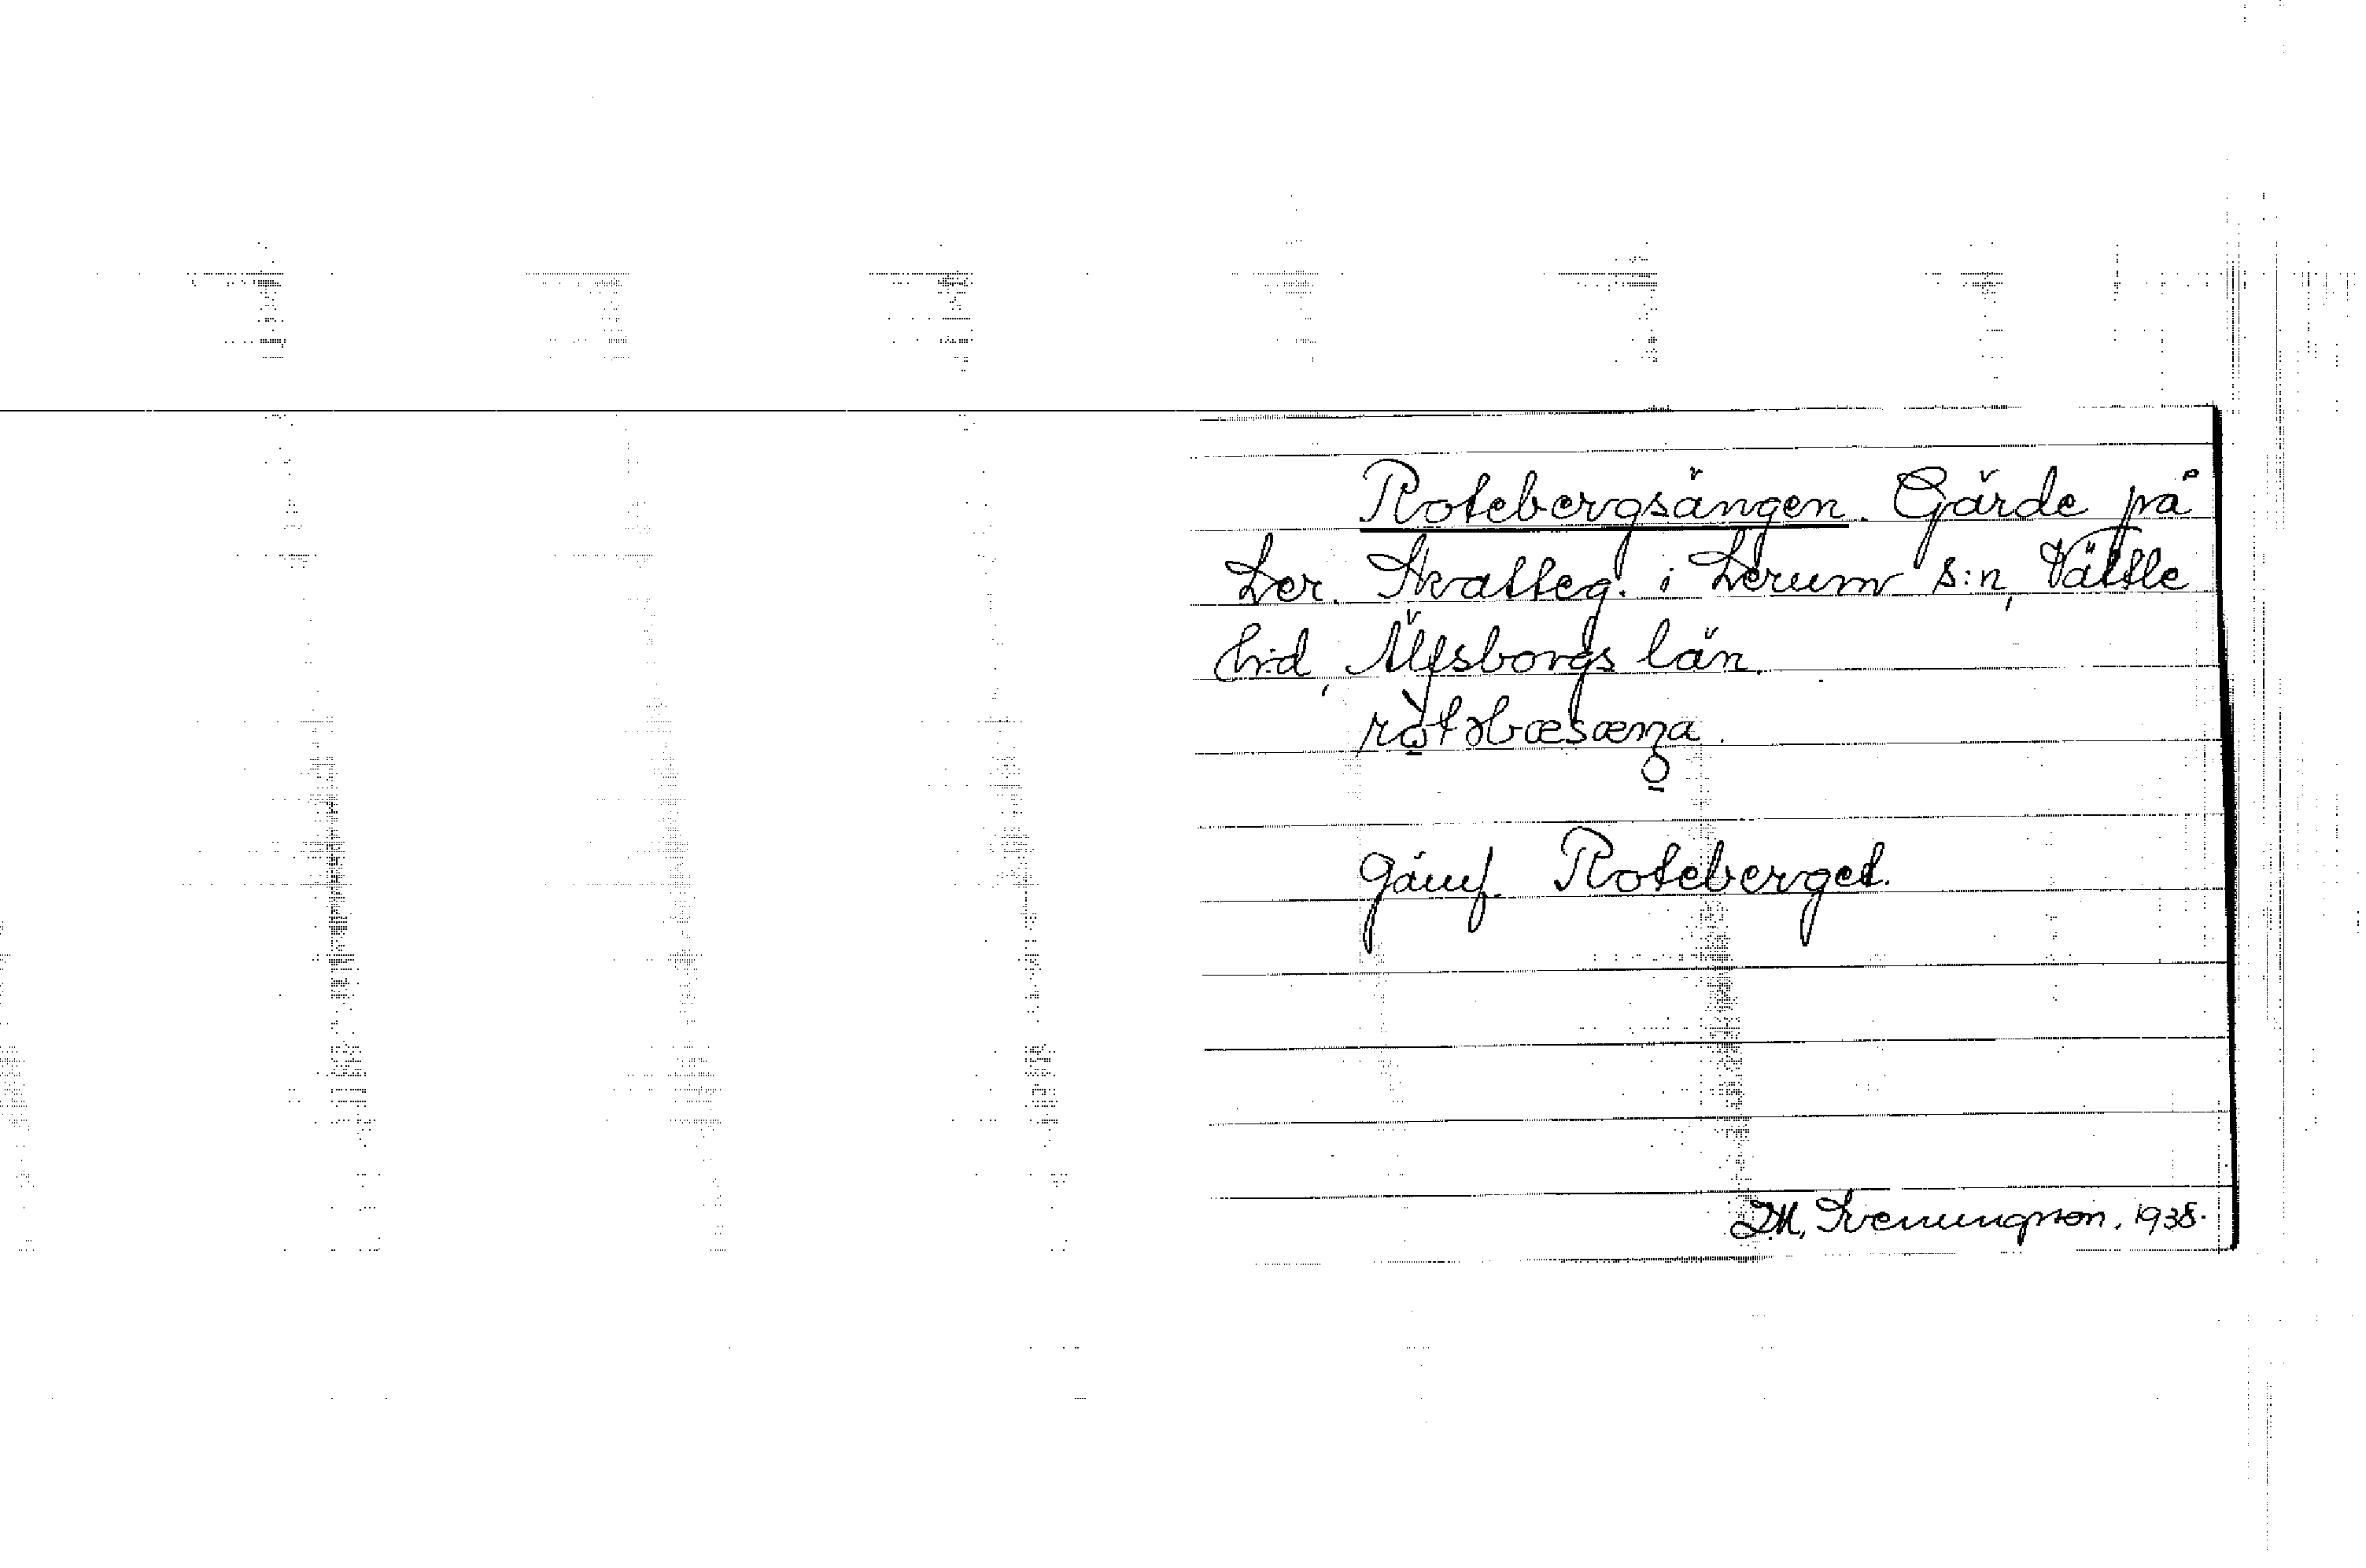 Rotebergsängen. Gärde på
Ler. Skatteg. i Lerum s:n, Vättle
h:d, Älfsborgs län.
Jämf. Roteberget.
I.M. Svenungsson. 1938.